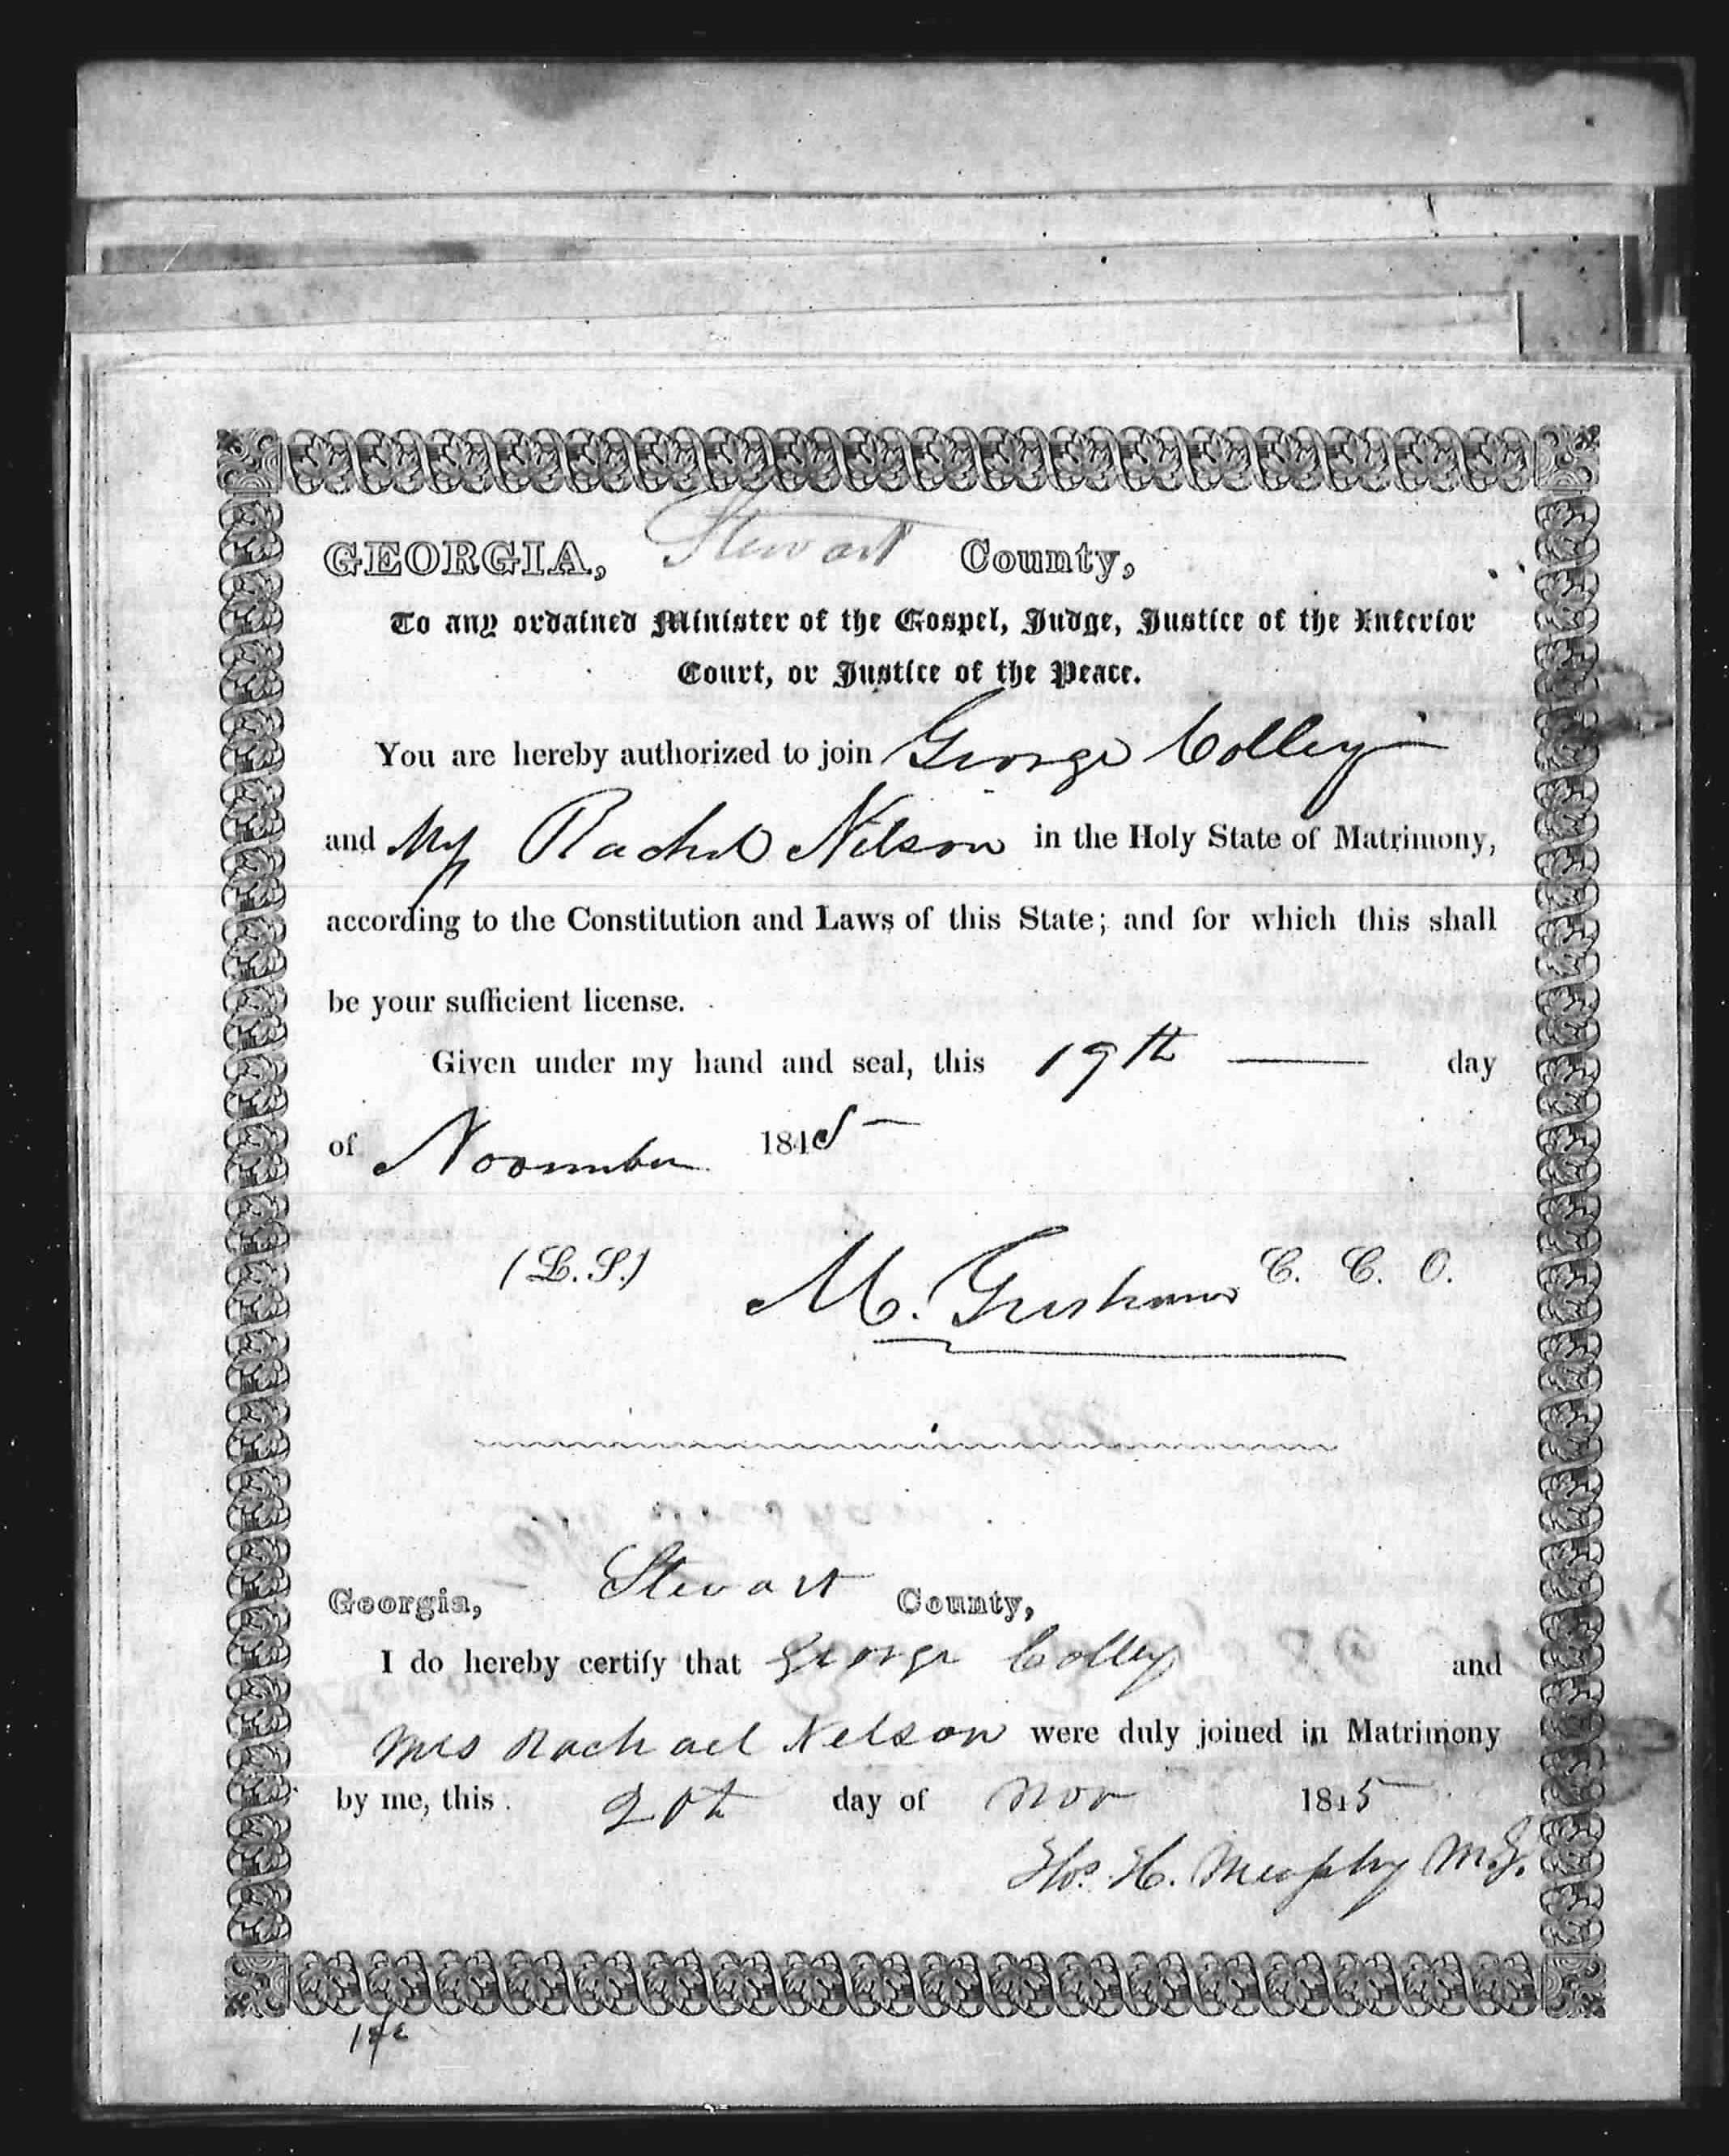 GEORGIA, Stewart County,
To any ordained Minister of the Gospel, Judge, Justice of the Inferior
Court, or Justice of the Peace.
You are hereby authorized to join George Colley
and Rachel Nelson in the Holy State of Matrimony,
according to the Constitution and Laws of this State; and for which this shall
be your sufficient license.
Given under my hand and seal, this 19th day
of November 1845
(L.S.) M. Gresham C. C. O.
Georgia, Stewart County,
I do hereby certify that George Colley and
Mrs Rachael Nelson were duly joined in Matrimony
by me, this 20th day of Nov 1845
Thos. H. Murphy M.G.